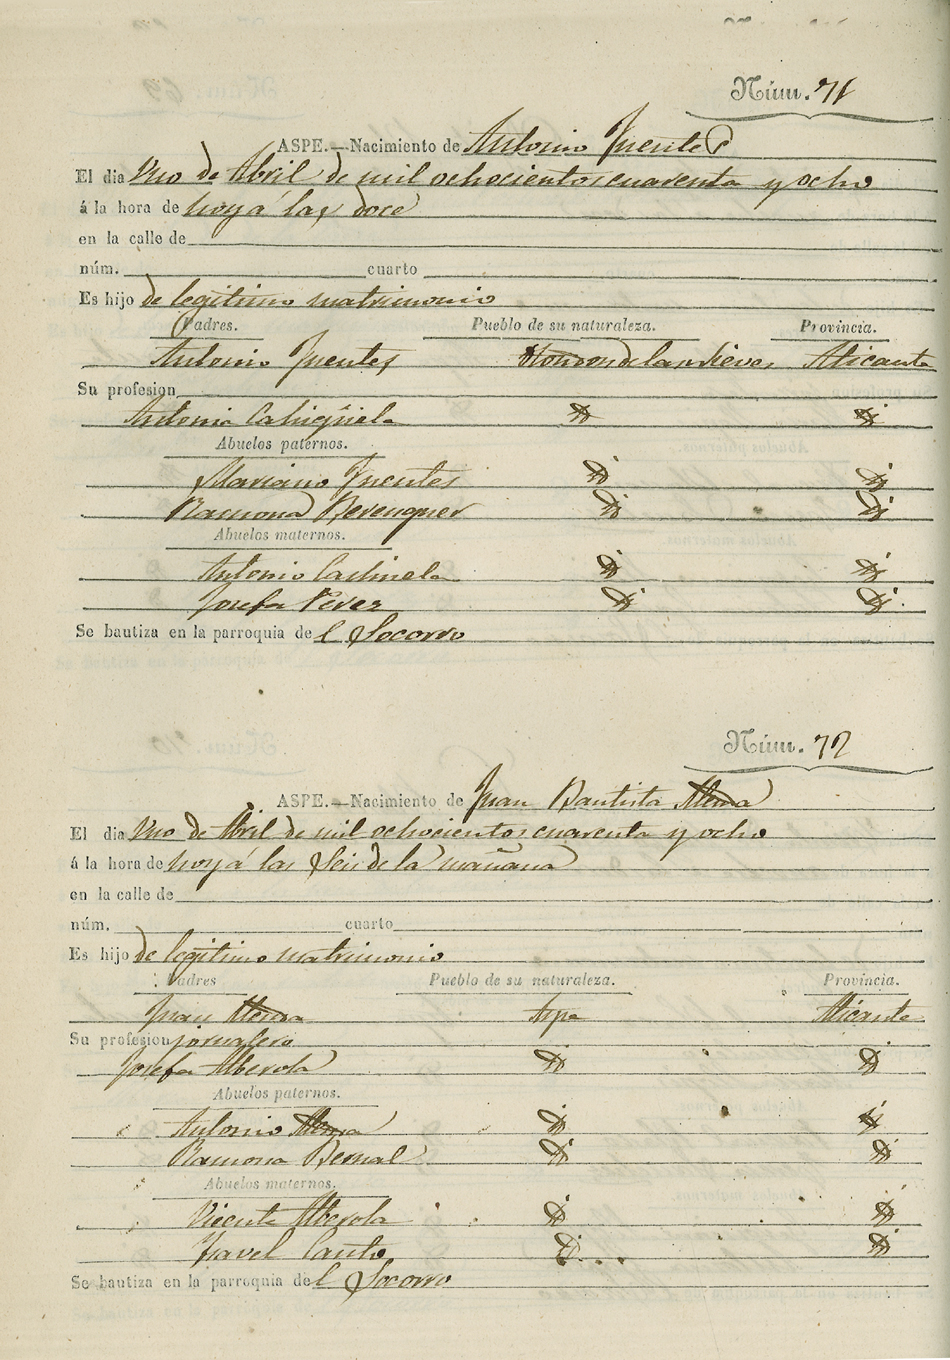 Núm. 71
ASPE.—Nacimiento de Antonio Fuentes
El dia Uno de Abril de mil ochocientos cuarenta y ocho
á la hora de hoy á las doce
en la calle de
núm. cuarto
Es hijo de legitimo matrimonio
Padres. Pueblo de su naturaleza. Provincia.
Antonio Fuentes Hondon de las Nieves Alicante
Su profesion
Antonia
Abuelos paternos.
Mariano Fuentes
Ramona Berenguer
Abuelos maternos.
Antonio
Josefa Perez
Se bautiza en la parroquia de l Socorro
Núm. 72
ASPE.—Nacimiento de Juan Bautista
El dia Uno de Abril de mil ochocientos cuarenta y ocho
á la hora de hoy á las seis de la mañana
en la calle de
núm. cuarto
Es hijo de legitimo matrimonio
Padres Pueblo de su naturaleza. Provincia.
Juan Aspe Alicante
Su profesion jornalero
Josefa Alberola
Abuelos paternos.
Antonio
Ramona Bernal
Abuelos maternos.
Vicente Alberola
Isavel Canto
Se bautiza en la parroquia de l Socorro